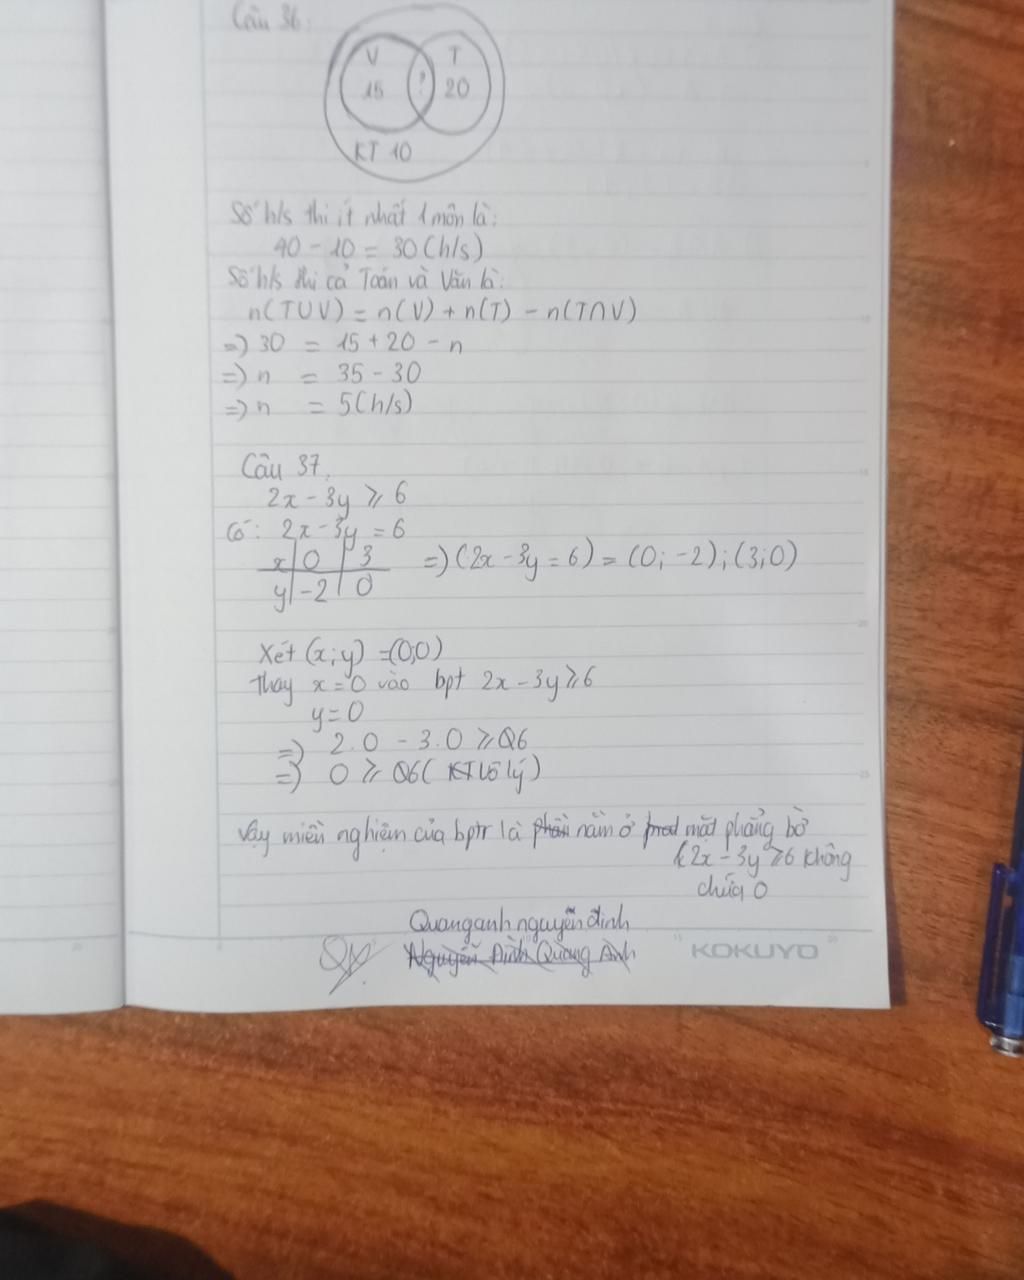 Câu 36:
V T
15 ? 20
KT 10
Số h/s thi ít nhất 1 môn là:
40 - 10 = 30 (h/s)
Số h/s thi cả Toán và Văn là:
n(TUV) = n(V) + n(T) - n(T∩V)
=) 30 = 15 + 20 - n
=) n = 35 - 30
=) n = 5(h/s)
Câu 37.
2x - 3y ⩾ 6
Có: 2x - 3y = 6
x | 0 | 3
y | -2 | 0
=) (2x - 3y = 6) = (0; -2); (3; 0)
Xét (x; y) = (0;0)
Thay x = 0 vào bpt 2x - 3y ⩾ 6
y = 0
=) 2.0 - 3.0 ⩾ 6
=) 0 ⩾ 6 (Vô lý)
Vậy miền nghiệm của bptr là nằm ở mặt phẳng bờ
2x - 3y ⩾ 6 không
chứa O
Quanganh nguyễn đình
Nguyễn Đình Quang Anh
KOKUYO